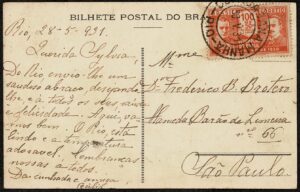 BILHETE POSTAL DO BRA
Rio, 28-5-931.
Querida Sylvia,
Do Rio envio-lhe um
saudoso abraço, desejando
lhe e a todos os seus
e felicidade. Aqui, va-
mos bem. O Rio está
lindo e a temperatura
adoravel. Lembranças
nossas a todos.
Da cunhada e amiga
Mme.
Dr. Frederico B. Brotero
Alameda Barão de Limeira
nº 66
São Paulo.
100